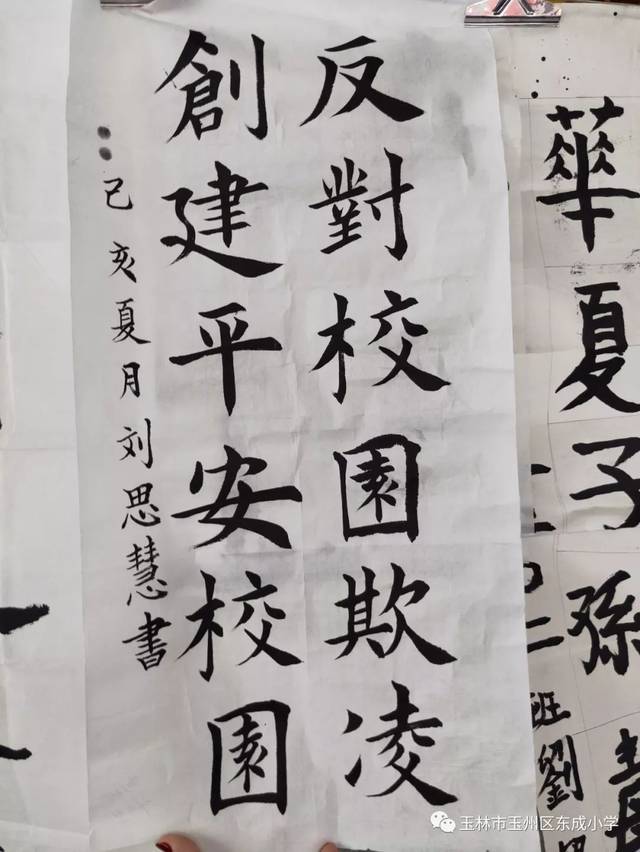 反對校園欺凌
創建平安校園
己亥夏月刘思慧書
華夏子孫
二〇二班劉思
玉林市玉州区东成小学